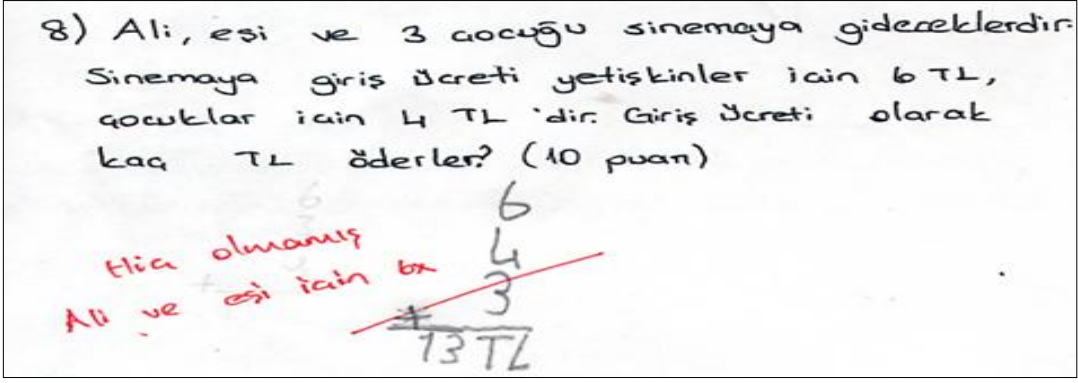 8) Ali, eşi ve 3 çocuğu sinemaya gideceklerdir.
Sinemaya giriş ücreti yetişkinler için 6 TL,
çocuklar için 4 TL 'dir. Giriş ücreti olarak
kaç TL öderler? (10 puan)
6
4
3
+
13 TL
Hiç olmamış
Ali ve eşi için 6x